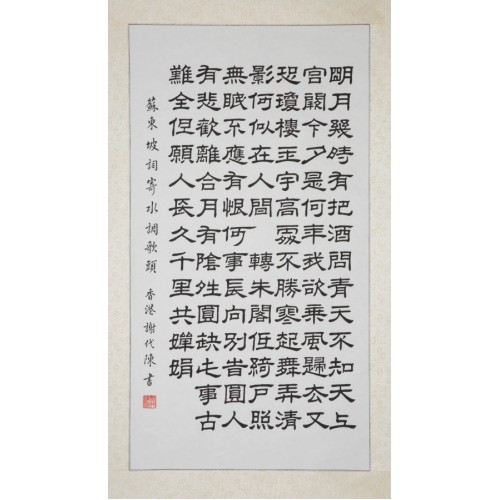 明月幾時有把酒問青天不知天上
宮闕今夕是何年我欲乘風歸去又
恐瓊樓玉宇高處不勝寒起舞弄清
影何似在人間轉朱閣低綺戶照
無眠不應有恨何事長向別旹圓人
有悲歡離合月有陰夝圓缺此事古
難全但願人長久千里共嬋娟
蘇東坡詞寄水調歌頭 香港謝代陳書